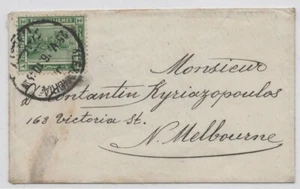 Monsieur
Constantin Kyriazopoulos
168 Victoria St.
N. Melbourne